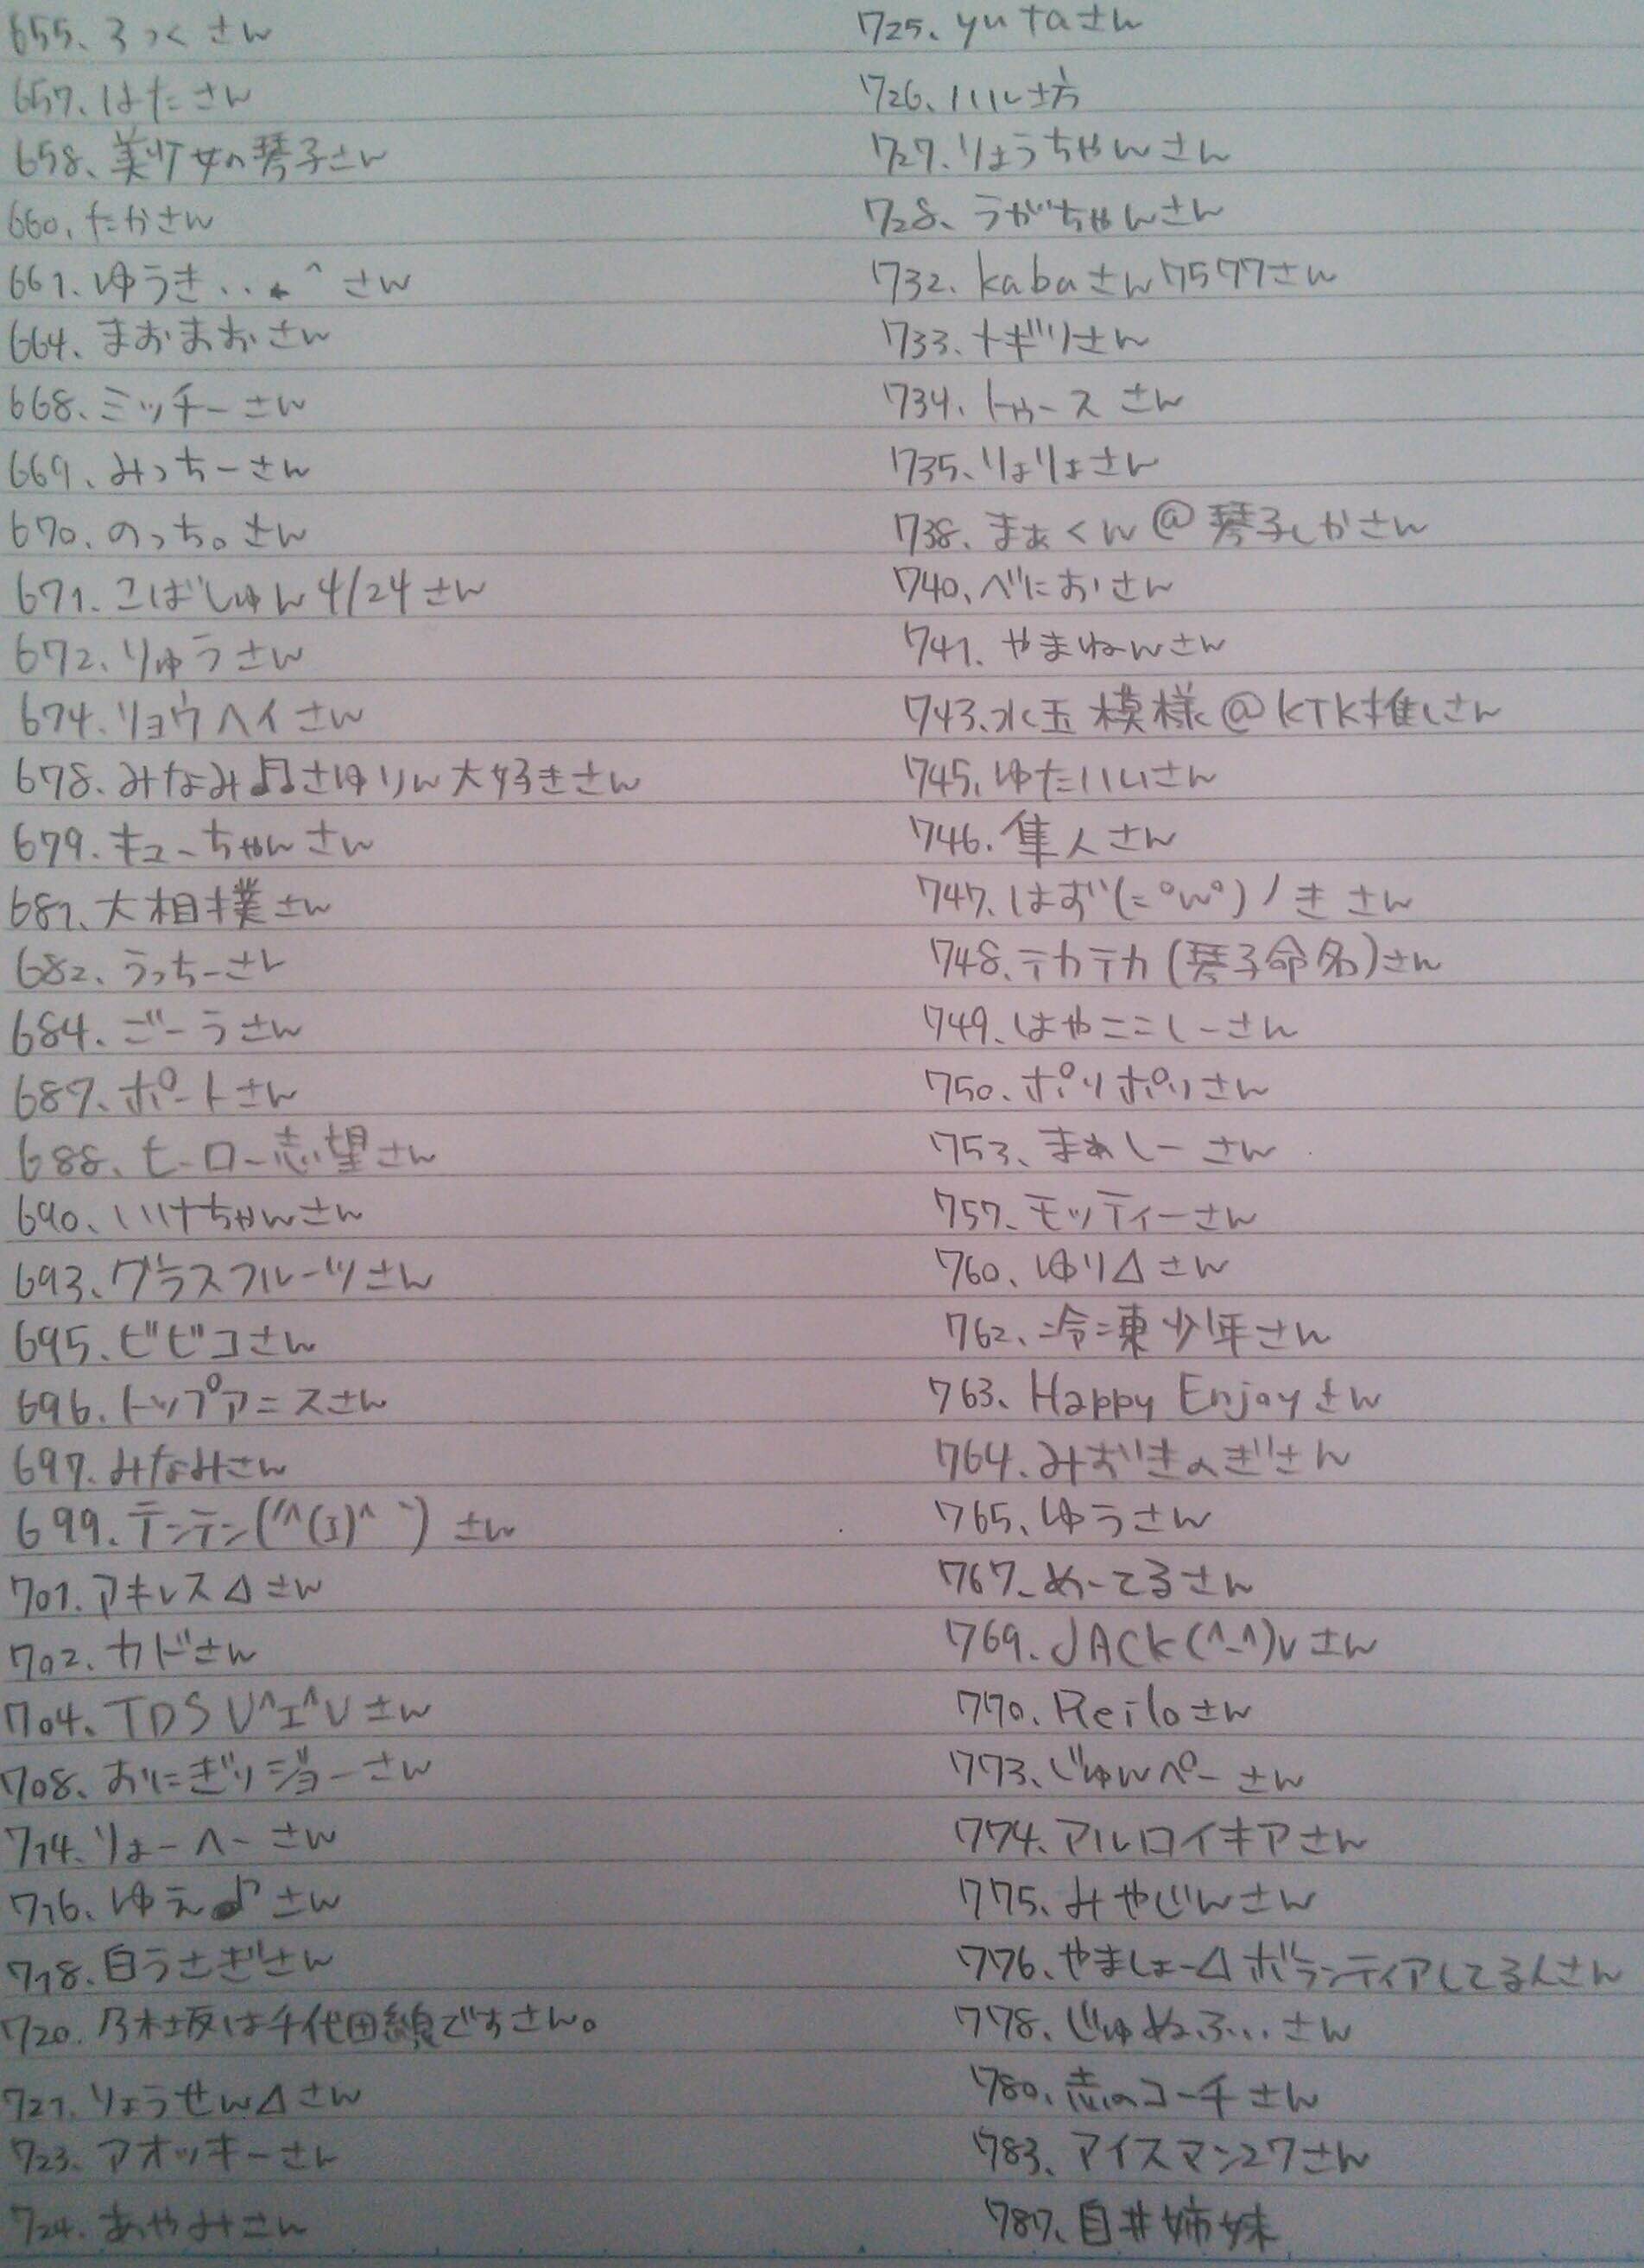 655、ろっくさん
657、はたさん
658、美少女の琴子さん
660、たかさん
661、ゆうき さん
664、まおまおさん
668、ミッチーさん
669、みっちーさん
670、のっち。さん
671、こばしゅん4/24さん
672、りゅうさん
674、リョウヘイさん
678、みなみ♫さゆりん大好きさん
679、キューちゃんさん
681、大相撲さん
682、うっちーさん
684、ごーうさん
687、ポートさん
688、ヒーロー志望さん
690、いけちゃんさん
693、グラスフルーツさん
695、ビビコさん
696、トップアニスさん
697、みなみさん
699、テンテン(´^(ｴ)^｀) さん
701、アキレス⊿さん
702、カドさん
704、TDS U^エ^Uさん
708、おにぎりジョーさん
714、りょーへーさん
716、ゆえ♪さん
718、白うさぎさん
720、乃木坂は千代田線ですさん。
721、りょうせん⊿さん
723、アオッキーさん
724、あやみさん
725、yutaさん
726、ハル坊
727、りょうちゃんさん
728、うがちゃんさん
732、kabaさん7577さん
733、ナギリさん
734、トゥース さん
735、りょりょさん
738、まぁくん@琴子しかさん
740、べにおさん
741、やまねんさん
743、水玉模様@KTK推しさん
745、ゆたいいさん
746、隼人さん
747、はず(=°w°)ノき さん
748、テカテカ(琴子命名)さん
749、はやここしーさん
750、ポリポリさん
753、まぁしーさん
757、モッティーさん
760、ゆり⊿さん
762、冷凍少年さん
763、Happy Enjoyさん
764、みずきのぎさん
765、ゆうさん
767、めーてるさん
769、JACK(^-^)vさん
770、Reiloさん
773、じゅんぺーさん
774、アルロイキアさん
775、みやじんさん
776、やましょー⊿ボランティアしてる人さん
778、じゅぬふ...さん
780、志のコーチさん
783、アイスマン27さん
787、白井姉妹